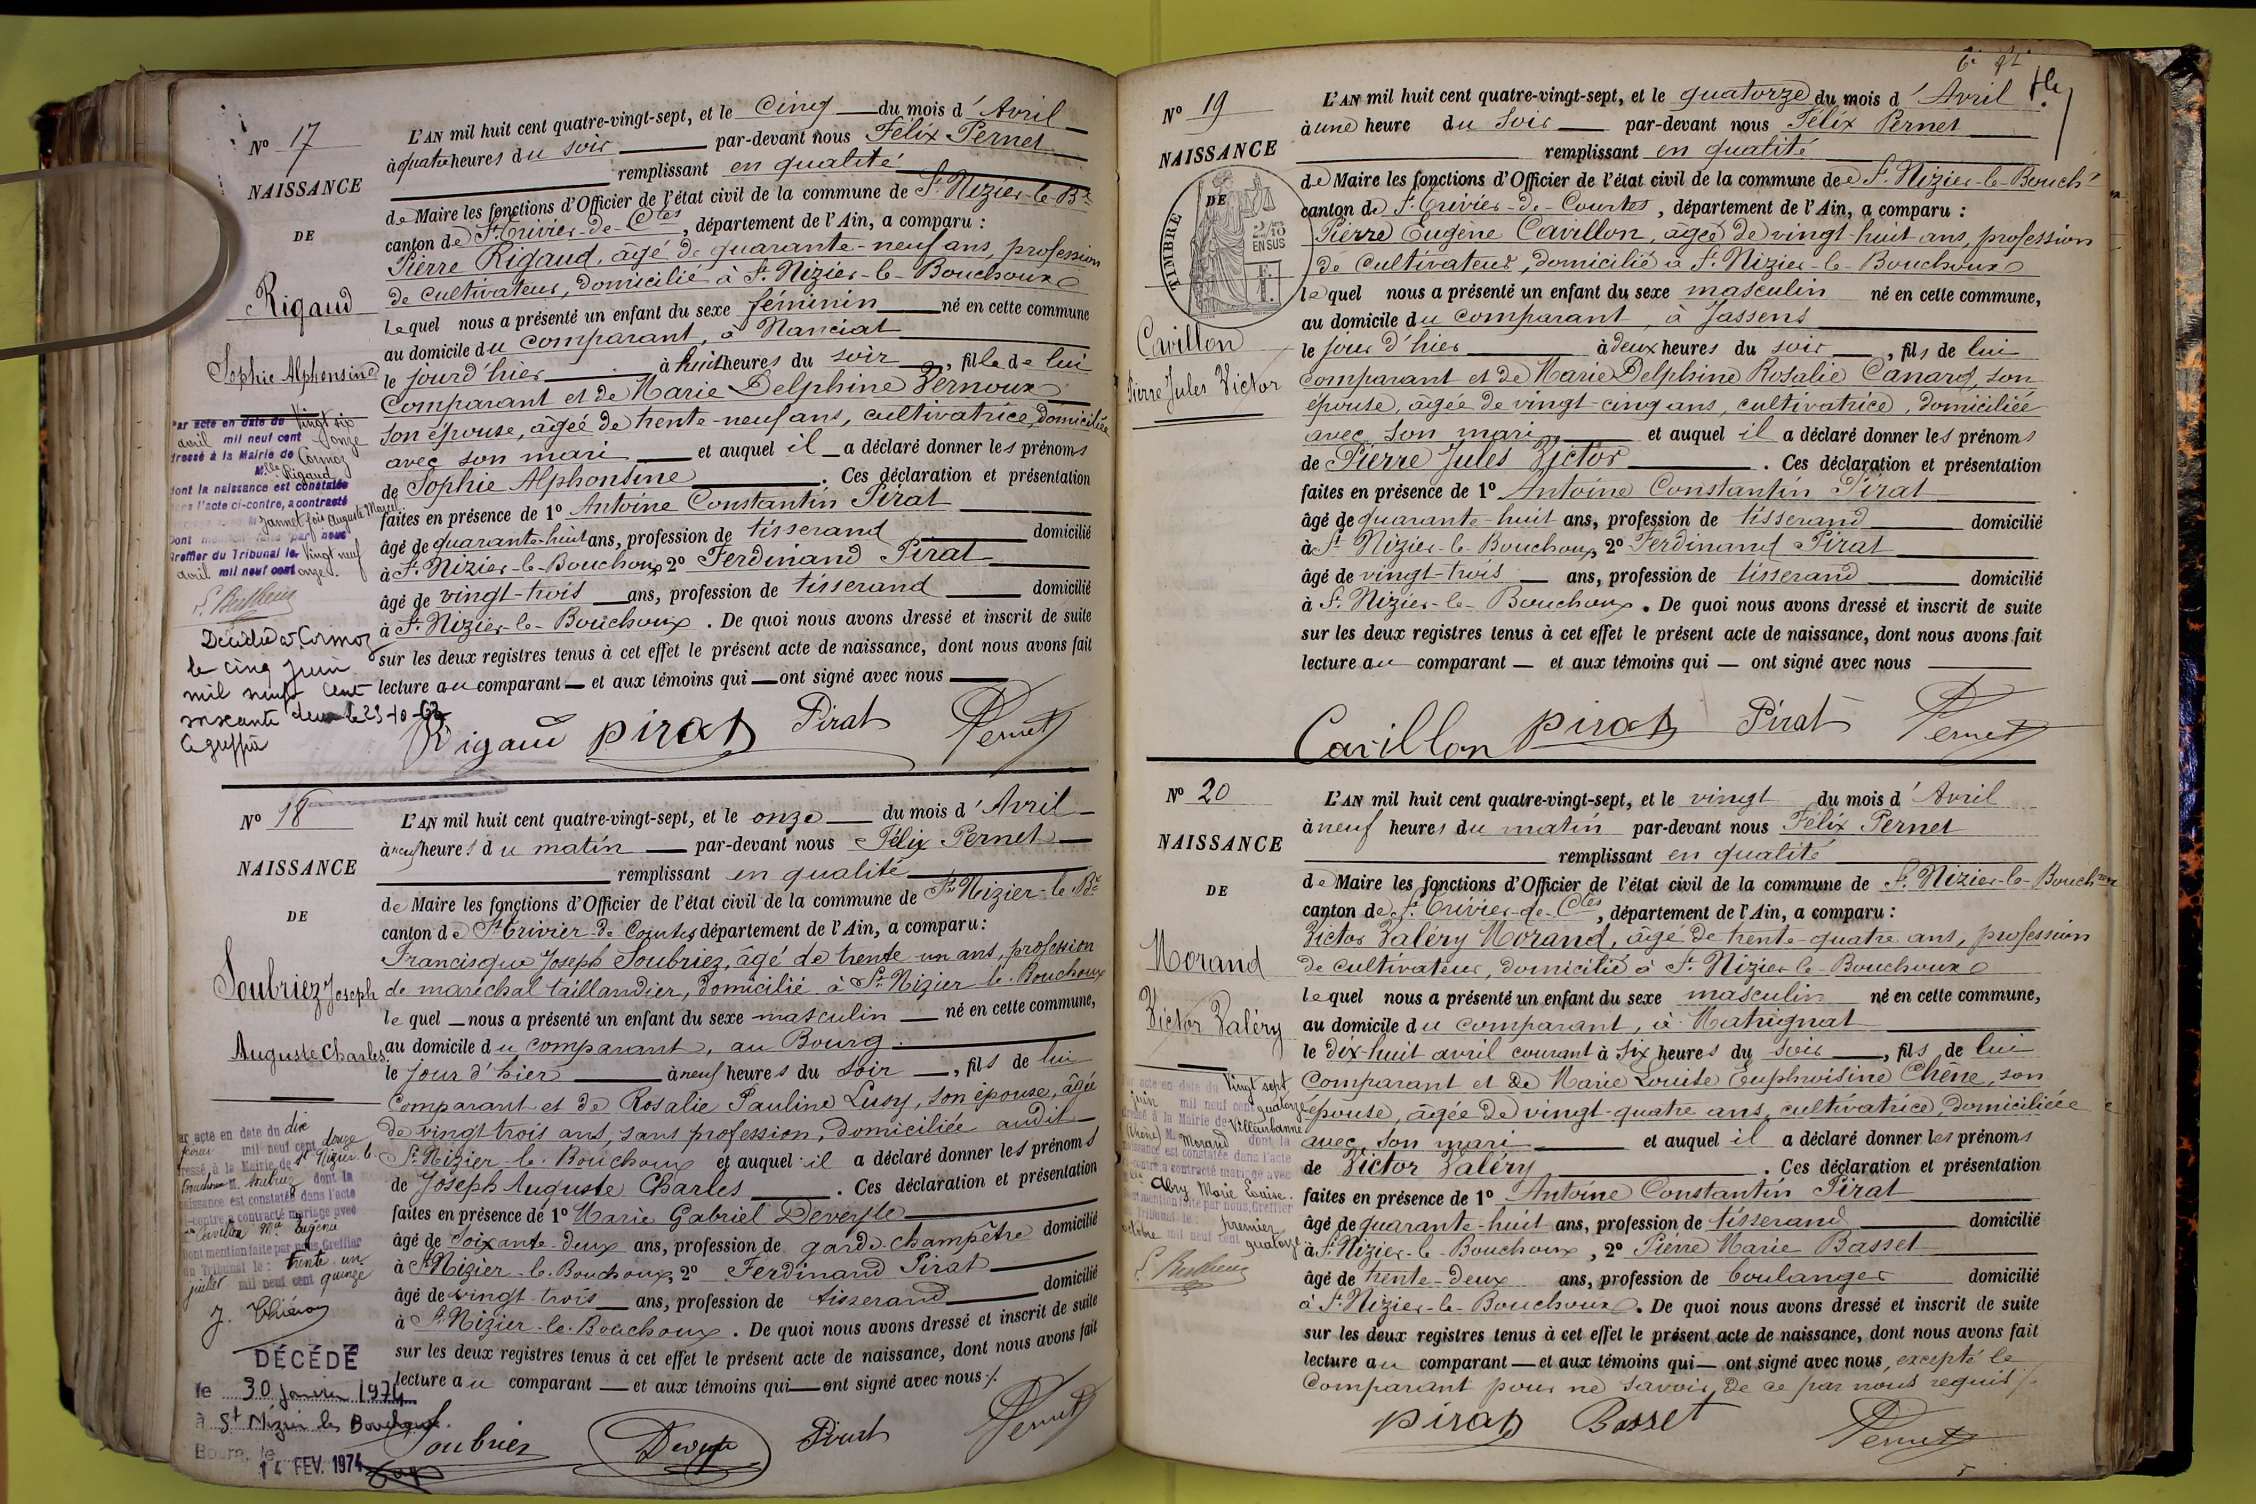 Nº 17
NAISSANCE
DE
Rigaud
Sophie Alphonsine
Par acte en date du vingt six
avril mil neuf cent onze
dressé à la Mairie de Cormoz
Mlle Rigaud
dont la naissance est constatée
dans l'acte ci-contre, a contracté
Jannet fois Auguste Marcel
Dont mention faite par nous
Greffier du Tribunal le vingt neuf
avril mil neuf cent onze.
Décédée à Cormoz
le cinq juin
mil neuf cent
soixante deux le 23-10-62
Le greffier
L'AN mil huit cent quatre-vingt-sept, et le cinq du mois d'Avril
à quatre heures du soir par-devant nous Félix Pernet
remplissant en qualité
de Maire les fonctions d'Officier de l'état civil de la commune de St Nizier-le-Bx
canton de St Trivier-de-Ctes, département de l'Ain, a comparu :
Pierre Rigaud, âgé de quarante-neuf ans, profession
de cultivateur, domicilié à St Nizier-le-Bouchoux
lequel nous a présenté un enfant du sexe féminin né en cette commune
au domicile du comparant, à Nanciat
le jour d'hier à huit heures du soir, fille de lui
comparant et de Marie Delphine Vernoux
son épouse, âgée de trente-neuf ans, cultivatrice, domiciliée
avec son mari et auquel il a déclaré donner les prénoms
de Sophie Alphonsine. Ces déclaration et présentation
faites en présence de 1º Antoine Constantin Pirat
âgé de quarante-huit ans, profession de tisserand domicilié
à St Nizier-le-Bouchoux 2º Ferdinand Pirat
âgé de vingt-trois ans, profession de tisserand domicilié
à St Nizier-le-Bouchoux. De quoi nous avons dressé et inscrit de suite
sur les deux registres tenus à cet effet le présent acte de naissance, dont nous avons fait
lecture au comparant et aux témoins qui ont signé avec nous
Rigaud Pirat Pirat Pernet
Nº 18
NAISSANCE
DE
Soubriez Joseph
Auguste Charles.
Par acte en date du dix
février mil neuf cent douze
dressé à la Mairie de St Nizier le
Bouchoux M. Soubriez dont la
naissance est constatée dans l'acte
ci-contre a contracté mariage avec
Cavillon Mie Eugénie
Dont mention faite par nous, Greffier
du Tribunal le : trente un
juillet mil neuf cent quinze
DÉCÉDÉ
le 30 janvier 1974
à St Nizier les Bouchoux.
Bourg, le
14 FEV. 1974
L'AN mil huit cent quatre-vingt-sept, et le onze du mois d'Avril
à neuf heures du matin par-devant nous Félix Pernet
remplissant en qualité
de Maire les fonctions d'Officier de l'état civil de la commune de St Nizier-le-Bx
canton de St Trivier-de-Courtes département de l'Ain, a comparu :
Francisque Joseph Soubriez, âgé de trente-un ans, profession
de maréchal taillandier, domicilié à St Nizier-le-Bouchoux
lequel nous a présenté un enfant du sexe masculin né en cette commune,
au domicile du comparant, au Bourg.
le jour d'hier à neuf heures du soir, fils de lui
comparant et de Rosalie Pauline Lusy, son épouse, âgée
de vingt trois ans, sans profession, domiciliée audit
St Nizier-le-Bouchoux et auquel il a déclaré donner les prénoms
de Joseph Auguste Charles. Ces déclaration et présentation
faites en présence de 1º Marie Gabriel Deveyle
âgé de soixante-deux ans, profession de garde-champêtre domicilié
à St Nizier-le-Bouchoux, 2º Ferdinand Pirat
âgé de vingt-trois ans, profession de tisserand domicilié
à St Nizier-le-Bouchoux. De quoi nous avons dressé et inscrit de suite
sur les deux registres tenus à cet effet le présent acte de naissance, dont nous avons fait
lecture au comparant et aux témoins qui ont signé avec nous
Soubriez Deveyle Pirat Pernet
Nº 19
NAISSANCE
DE
TIMBRE
2/10
EN SUS
Cavillon
Pierre Jules Victor
L'AN mil huit cent quatre-vingt-sept, et le quatorze du mois d'Avril
à une heure du soir par-devant nous Félix Pernet
remplissant en qualité
de Maire les fonctions d'Officier de l'état civil de la commune de St Nizier-le-Bouchx
canton de St Trivier-de-Courtes, département de l'Ain, a comparu :
Pierre Eugène Cavillon, âgé de vingt-huit ans, profession
de cultivateur, domicilié à St Nizier-le-Bouchoux
lequel nous a présenté un enfant du sexe masculin né en cette commune,
au domicile du comparant, à Jassens
le jour d'hier à deux heures du soir, fils de lui
comparant et de Marie Delphine Rosalie Canard, son
épouse, âgée de vingt-cinq ans, cultivatrice, domiciliée
avec son mari, et auquel il a déclaré donner les prénoms
de Pierre Jules Victor. Ces déclaration et présentation
faites en présence de 1º Antoine Constantin Pirat
âgé de quarante-huit ans, profession de tisserand domicilié
à St Nizier-le-Bouchoux, 2º Ferdinand Pirat
âgé de vingt-trois ans, profession de tisserand domicilié
à St Nizier-le-Bouchoux. De quoi nous avons dressé et inscrit de suite
sur les deux registres tenus à cet effet le présent acte de naissance, dont nous avons fait
lecture au comparant et aux témoins qui ont signé avec nous
Cavillon Pirat Pirat Pernet
Nº 20
NAISSANCE
DE
Morand
Victor Valéry
Par acte en date du vingt sept
juin mil neuf cent quatorze
dressé à la Mairie de Villeurbanne
(Rhône) M. Morand dont la
naissance est constatée dans l'acte
ci-contre a contracté mariage avec
Abry Marie Louise.
Dont mention faite par nous, Greffier
du Tribunal le : premier
octobre mil neuf cent quatorze
L'AN mil huit cent quatre-vingt-sept, et le vingt du mois d'Avril
à neuf heures du matin par-devant nous Félix Pernet
remplissant en qualité
de Maire les fonctions d'Officier de l'état civil de la commune de St Nizier-le-Bouchoux
canton de St Trivier-de-Ctes, département de l'Ain, a comparu :
Victor Valéry Morand, âgé de trente-quatre ans, profession
de cultivateur, domicilié à St Nizier-le-Bouchoux
lequel nous a présenté un enfant du sexe masculin né en cette commune,
au domicile du comparant, à Matrignat
le dix-huit avril courant à six heures du soir, fils de lui
comparant et de Marie Louise Euphroisine Chêne, son
épouse, âgée de vingt-quatre ans, cultivatrice, domiciliée
avec son mari et auquel il a déclaré donner les prénoms
de Victor Valéry. Ces déclaration et présentation
faites en présence de 1º Antoine Constantin Pirat
âgé de quarante-huit ans, profession de tisserand domicilié
à St Nizier-le-Bouchoux, 2º Pierre Marie Basset
âgé de trente-deux ans, profession de boulanger domicilié
à St Nizier-le-Bouchoux. De quoi nous avons dressé et inscrit de suite
sur les deux registres tenus à cet effet le présent acte de naissance, dont nous avons fait
lecture au comparant et aux témoins qui ont signé avec nous, excepté le
comparant pour ne savoir, de ce par nous requis
Pirat Basset Pernet